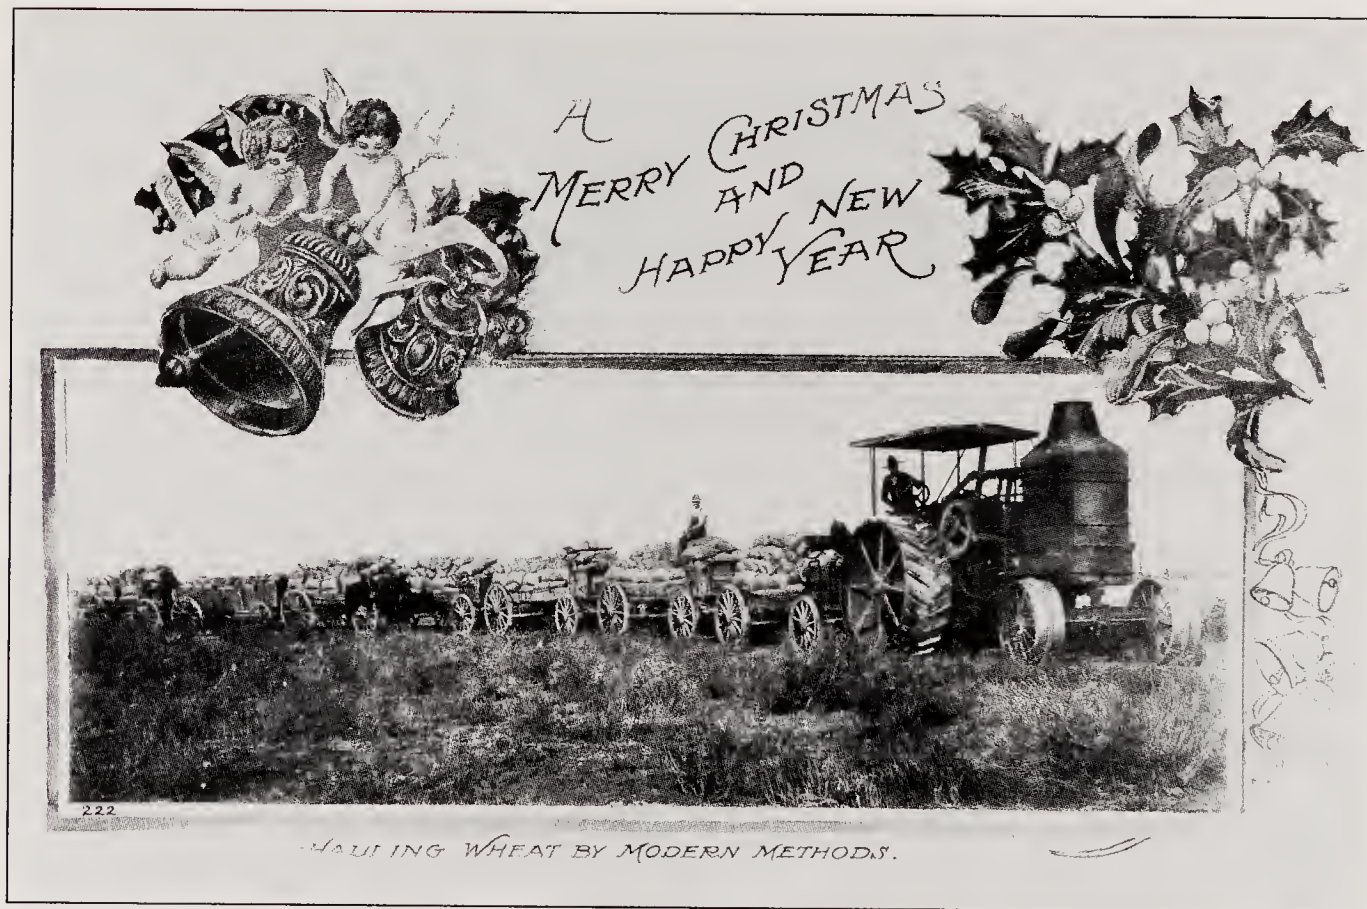 A
MERRY CHRISTMAS
AND
HAPPY NEW
YEAR
222
HAULING WHEAT BY MODERN METHODS.